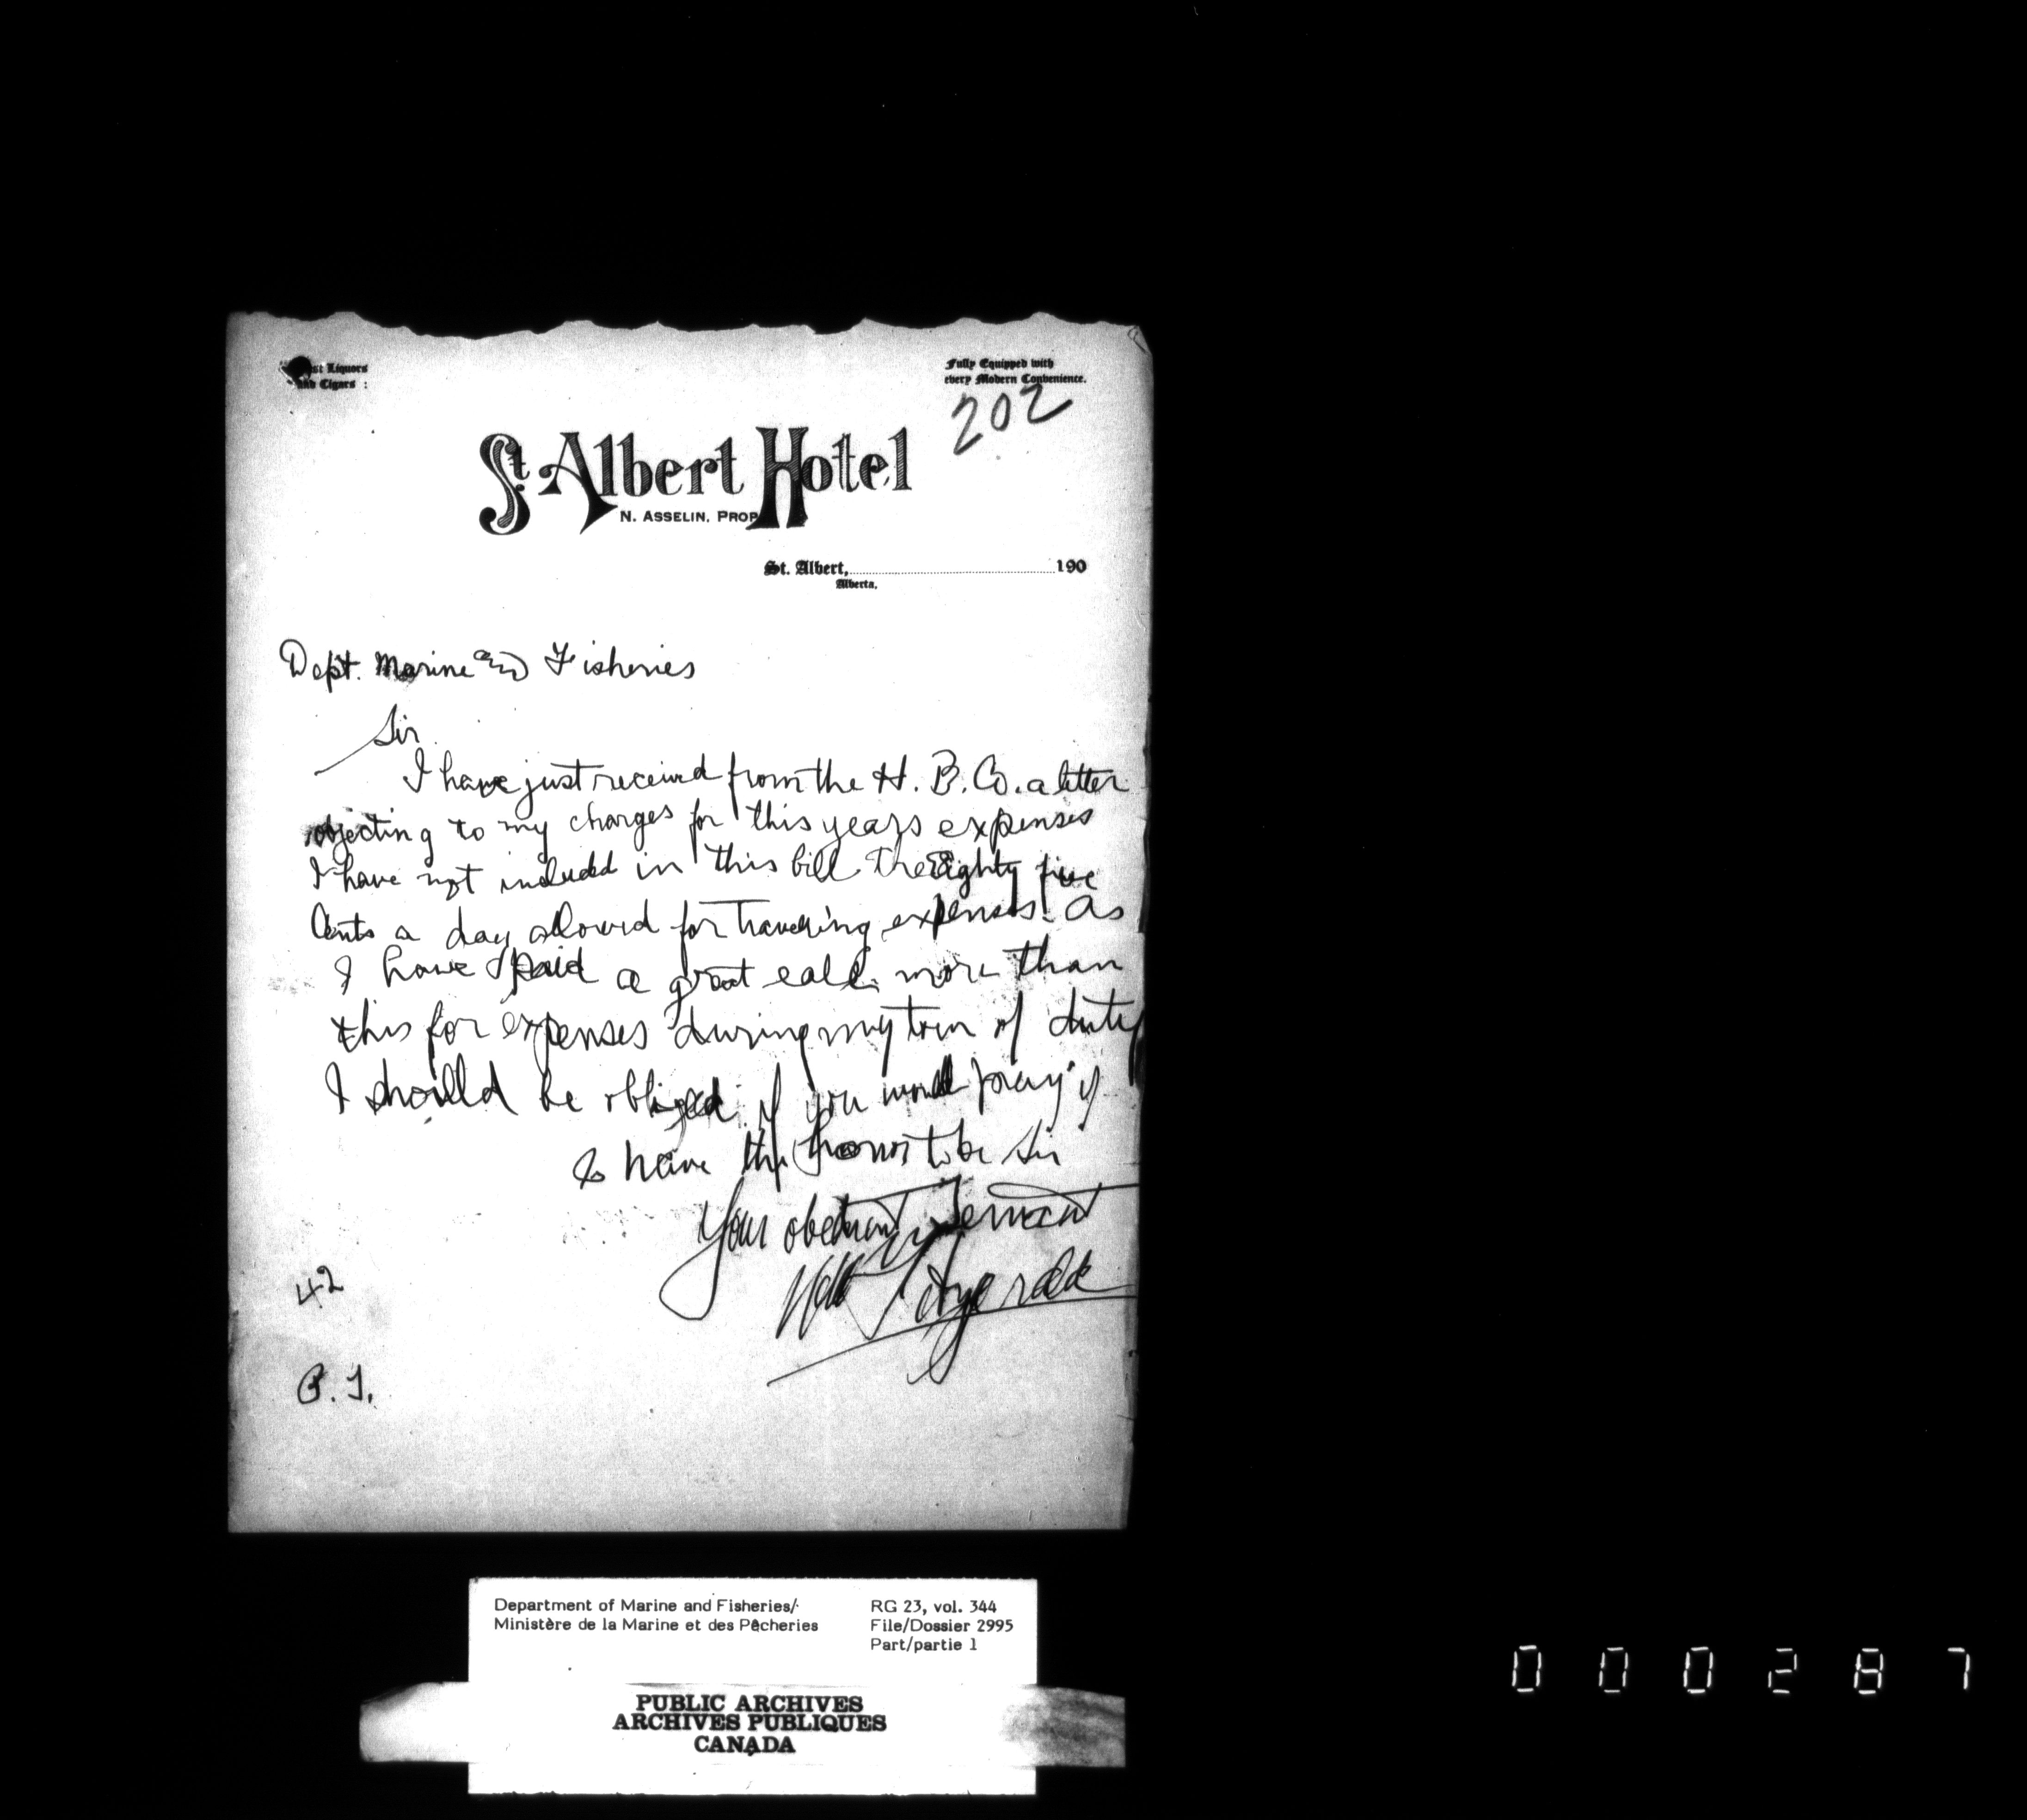 st Liquors
and Cigars :
Fully Equipped with
every Modern Convenience.
202
St. Albert Hotel
N. ASSELIN, PROP
St. Albert, 190
Alberta.
Dept. Marine and Fisheries
Sir
I have just received from the H. B. Co. a letter
objecting to my charges for this years expenses
I have not included in this bill the Eighty five
Cents a day allowed for travelling expenses. As
I have paid a great eall more than
this for expenses during my tour of duty
I should be obliged if you would
I have the honor to be Sir
Your obedient Servant
Fitzgerald
42
P. T.
Department of Marine and Fisheries/
Ministère de la Marine et des Pêcheries
RG 23, vol. 344
File/Dossier 2995
Part/partie 1
PUBLIC ARCHIVES
ARCHIVES PUBLIQUES
CANADA
000287